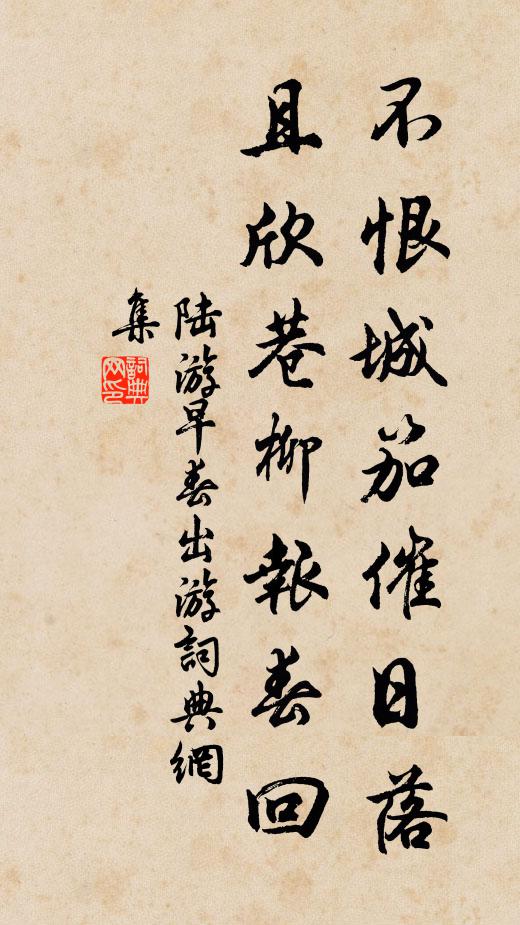 不恨城笳催日落
且欣巷柳報春回
陸游早春出游詞典網
集
詞典網印